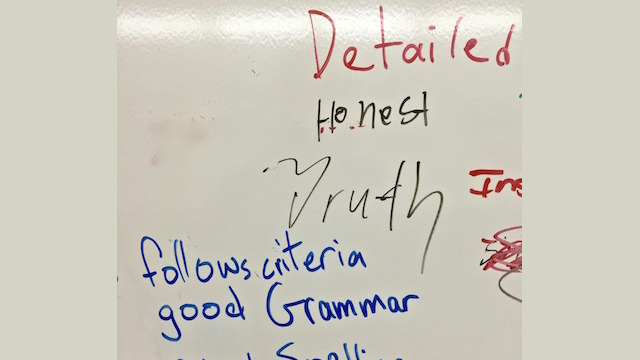 Detailed
Honest
Truth
follows criteria
good Grammar
Spelling